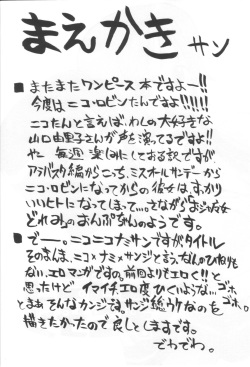 まえがき サン
■またまたワンピース本ですよー!!
今度はニコ・ロビンたんですよ!!!!!
ニコたんと言えば、わしの大好きな
山口由里子さんが声を演ってるですよ!!
や 毎週楽しみにしておる訳ですが、
アラバスタ編からこっち、ミス・オールサンデーから
ニコ・ロビンになってからの彼女は、すっかり
いいヒトになってしまって…。さながら
どれみのおんぷちゃんのようです。
■でー。ニコニコナミサンですがタイトル
そのまんま、ニコ×ナミ×サンジと言う、なんのひねりも
ない、エロマンガですの。前回よりもエロく!!と
思ったけど イマイチエロ度ひくいような…。ゴホ
とまぁ そんなカンジです。サンジ総ウケなのを ゴホ。
描きたかったので良しとしますです。
でわでわ。